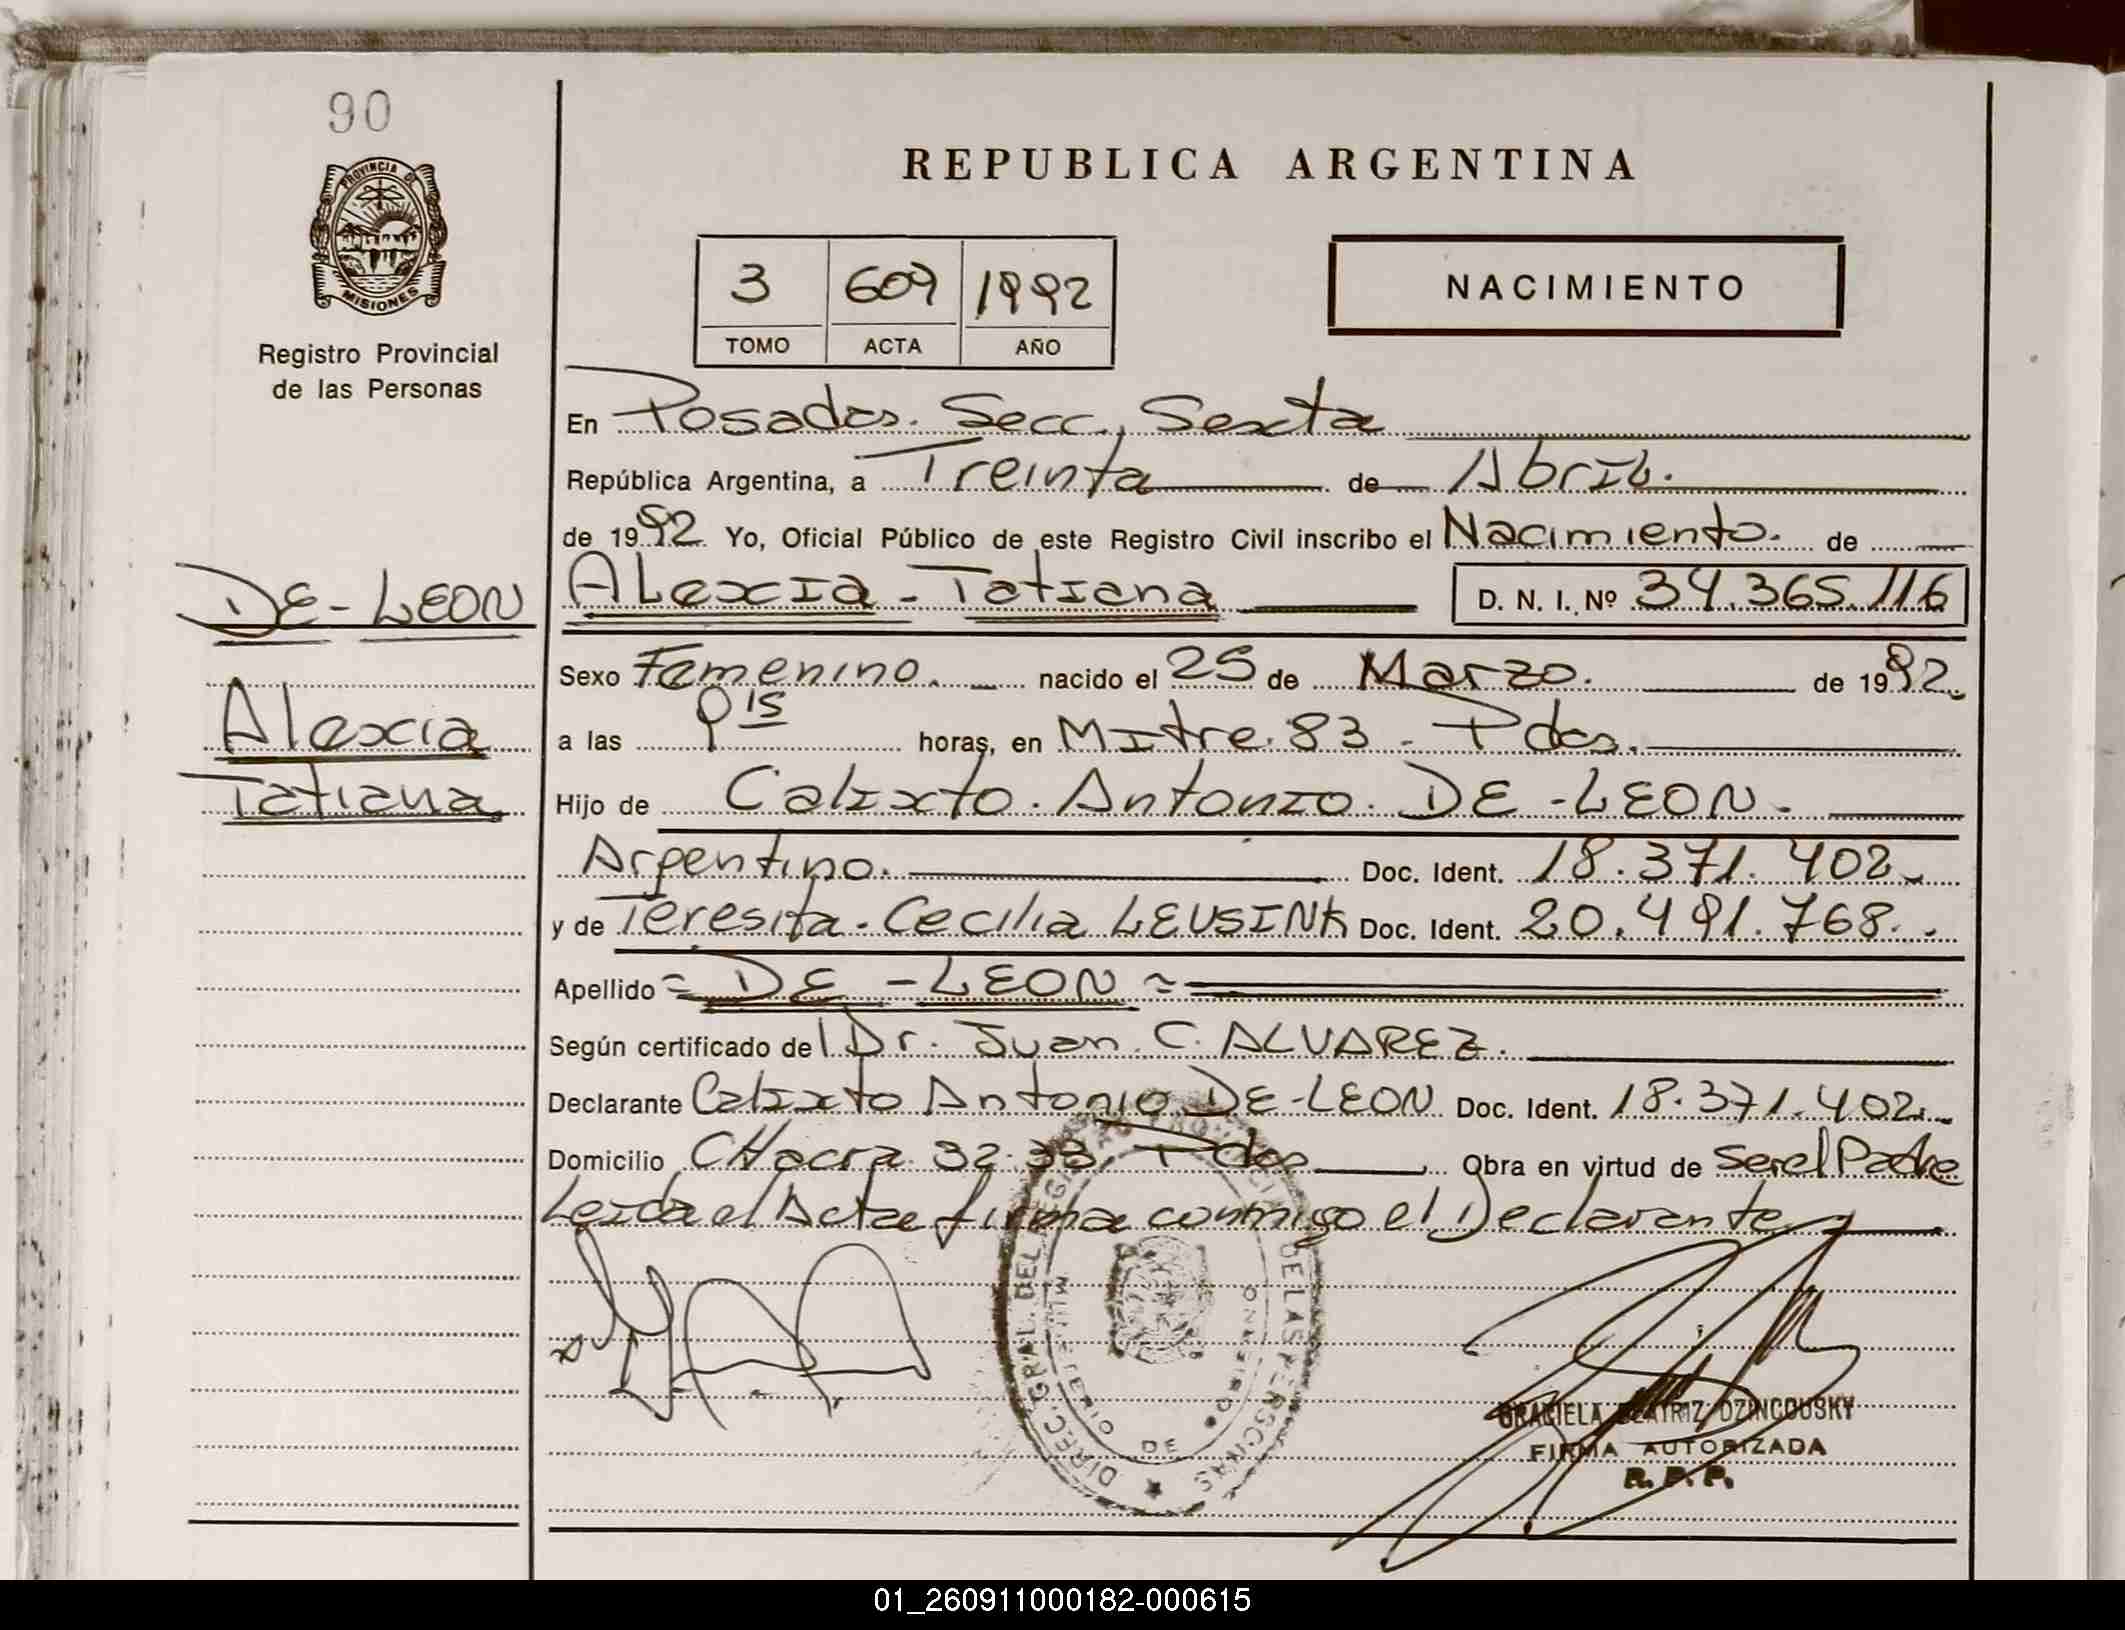 90
PROVINCIA D
MISIONES
Registro Provincial
de las Personas
REPUBLICA ARGENTINA
3 609 1992
TOMO ACTA AÑO
NACIMIENTO
En Posadas. Secc. Sexta
República Argentina, a Treinta de Abril.
de 1992. Yo, Oficial Público de este Registro Civil inscribo el Nacimiento. de
DE-LEON
Alexcia - Tatiana D. N. I. Nº 34.365.116
Sexo Femenino. nacido el 25 de Marzo. de 1992.
Alexcia
a las 9 15 horas, en Mitre. 83 - Pdas.
Tatiana
Hijo de Calixto. Antonio. DE-LEON.
Argentino. Doc. Ident. 18.371.402.
y de Teresita. Cecilia LEUSINK Doc. Ident. 20.491.768.
Apellido = DE-LEON =
Según certificado del Dr. Juan C. ALVAREZ.
Declarante Calixto Antonio DE-LEON Doc. Ident. 18.371.402.
Domicilio CHacra 32-33, Pdas Obra en virtud de Ser el Padre
Leida el Acta firma conmigo el Declarante
DIREC. GRAL. DEL REGISTRO PROVINCIAL DE LAS PERSONAS
MINISTERIO DE GOBIERNO
GRACIELA BEATRIZ DZINCOUSKY
FIRMA AUTORIZADA
R. P. P.
01_260911000182-000615